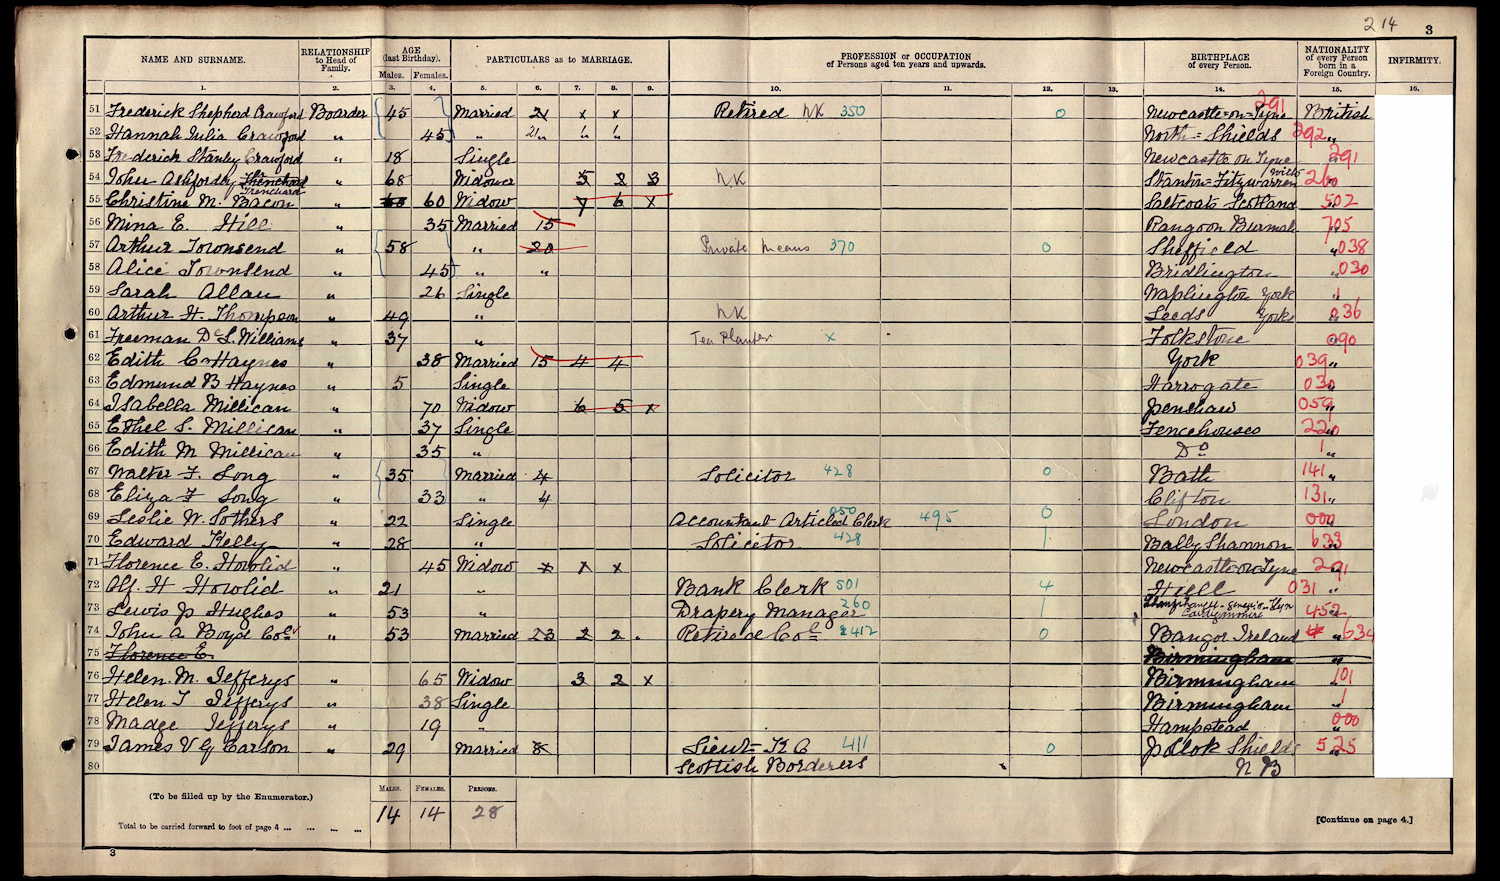 214 3
NAME AND SURNAME. RELATIONSHIP to Head of Family. AGE (last Birthday). PARTICULARS as to MARRIAGE. PROFESSION or OCCUPATION of Persons aged ten years and upwards. BIRTHPLACE of every Person. NATIONALITY of every Person born in a Foreign Country. INFIRMITY.
Males. Females.
1. 2. 3. 4. 5. 6. 7. 8. 9. 10. 11. 12. 13. 14. 15. 16.
51 Frederick Shepherd Crawford Boarder 45 Married 21 x x Retired NK 350 0 Newcastle-on-Tyne 291 British
52 Hannah Julia Crawford " 45 " 21 " " North-Shields 292 "
53 Frederick Stanley Crawford " 18 Single Newcastle on Tyne 291
54 John Ashfordby Trenchard " 68 Widower 5 2 3 NK Stanton-Fitzwarren Wilts 260
55 Christine M. Bacon " 60 Widow 7 6 x Saltcoats Scotland 502
56 Mina E. Hill " 35 Married 15 Rangoon Burmah 705
57 Arthur Townsend " 58 " 20 Private means 370 0 Sheffield " 038
58 Alice Townsend " 45 " " Bridlington " 030
59 Sarah Allan " 26 Single Waplington York "
60 Arthur H. Thompson " 49 " NK Leeds Yorks 036
61 Freeman De L. Williams " 37 " Tea Planter x Folkstone 090
62 Edith C Haynes " 38 Married 15 4 4 York 039 "
63 Edmund B Haynes " 5 Single Harrogate 030
64 Isabella Millican " 70 Widow 6 5 x Penshaw 059
65 Ethel S. Millican " 37 Single Fencehouses 220
66 Edith M Millican " 35 " Do "
67 Walter F. Long " 35 Married 4 Solicitor 428 0 Bath 141 "
68 Eliza F Long " 33 " 4 Clifton 131 "
69 Leslie W. Sothers " 22 Single Accountant Articled Clerk 050 495 0 London 000
70 Edward Kelly " 28 " Solicitor 428 1 Bally Shannon 633
71 Florence E. Howlid " 45 Widow x x x Newcastle on Tyne 291
72 Alf. H Howlid " 21 " Bank Clerk 501 4 Hull 031 "
73 Lewis P Hughes " 53 " Drapery Manager 260 1 452
74 John A Boyd Col " 53 Married 23 2 2 . Retired Col 2412 0 Bangor Ireland " 634
75 Florence E. Birmingham "
76 Helen. M. Jefferys " 65 Widow 3 2 x Birmingham 101
77 Helen I Jefferys " 38 Single Birmingham "
78 Madge Jefferys " 19 " Hampstead 000
79 James V G Carson " 29 Married 8 Lieut K O 411 0 Pollok Shields 525
80 Scottish Borderers N B
(To be filled up by the Enumerator.) MALES. FEMALES. PERSONS.
Total to be carried forward to foot of page 4 ... ... ... ... 14 14 28 [Continue on page 4.]
3